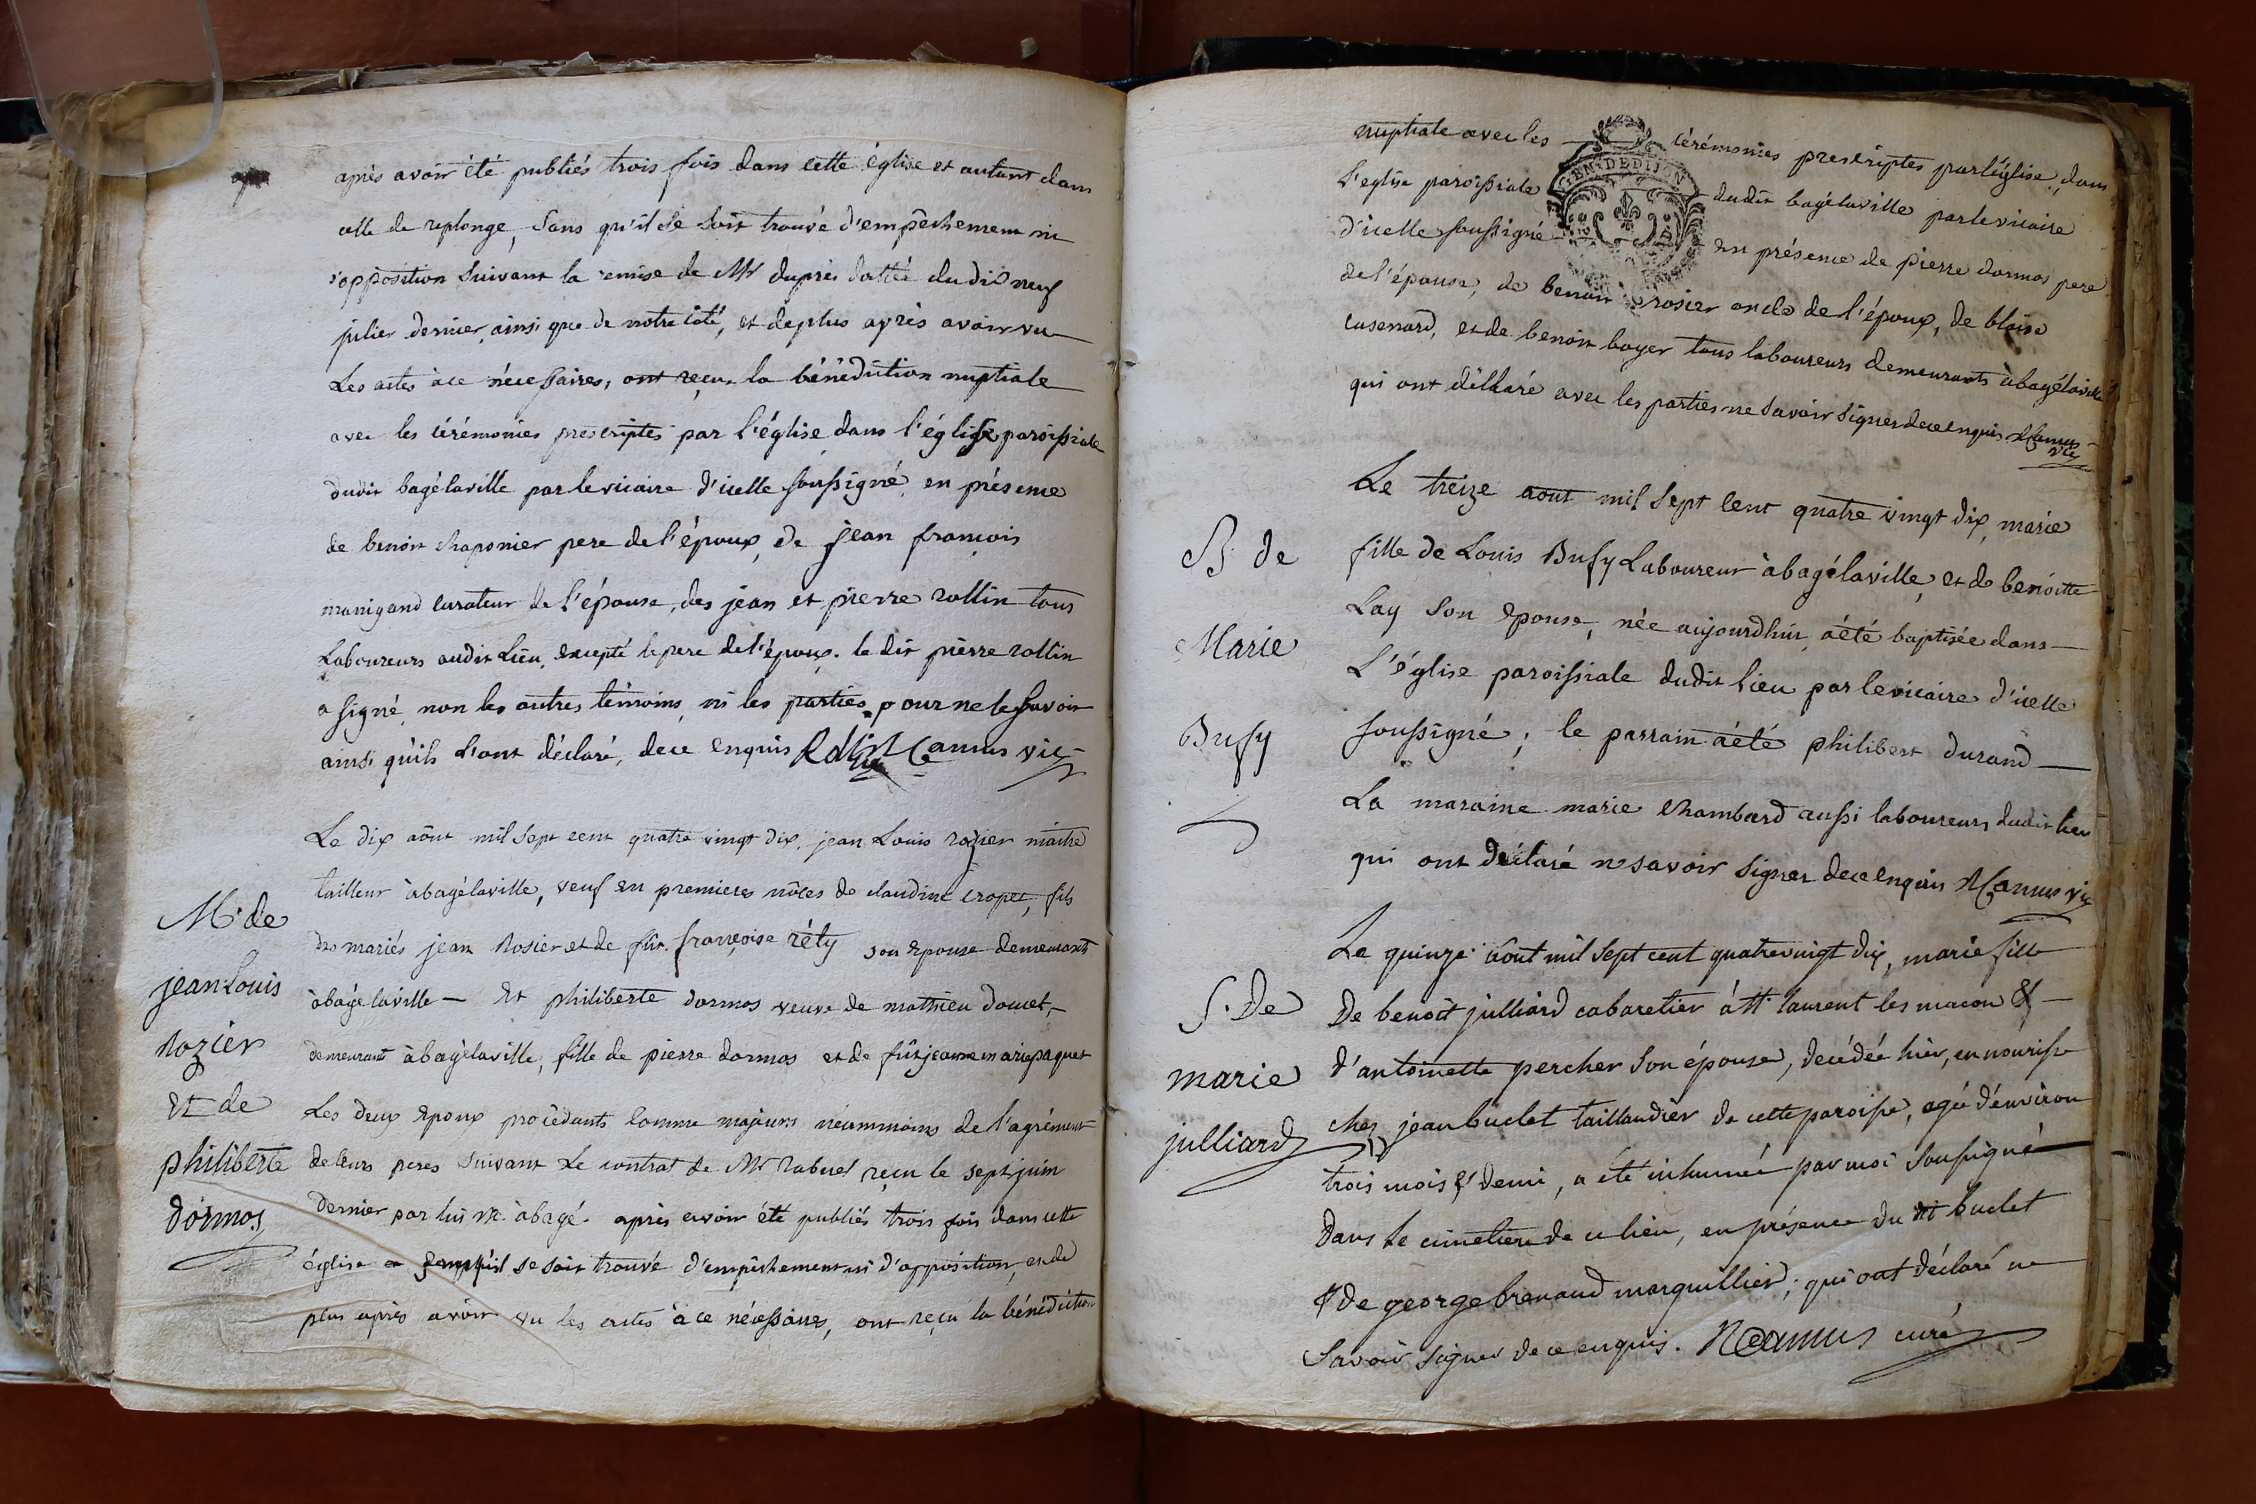 après avoir été publiés trois fois dans cette église et autant dans
celle de replonge, sans qu'il se soit trouvé d'empêchement ni
d'opposition suivant la remise de Mr duprés dattée du dix neuf
julier dernier, ainsi que de notre coté, et de plus après avoir vu
Les actes à ce nécessaires, ont reçu la bénédiction nuptiale
avec les cérémonies prescriptes par l'église dans l'église paroissiale
dudit bagélaville par le vicaire d'icelle soussigné en présence
de benoit chaponier pere de l'époux, de jean françois
manigand curateur de l'épouse, des jean et pierre rollin tous
Laboureurs audit Lieu, excepté le pere de l'époux. le dit pierre rollin
a signé, non les autres témoins, ni les parties, pour ne le savoir
ainsi qu'ils l'ont déclaré, de ce enquis Rollin Camus vic
M. de
jean Louis
Rozier
et de
philiberte
dormos
Le dix aout mil sept cent quatre vingt dix, jean Louis rozier maitre
tailleur à bagélaville, veuf en premieres nôces de claudine cropet, fils
des mariés jean Rosier et de fue françoise réty son epouse demeurants
à bagélaville — Et philiberte dormos veuve de mathieu doucet,
demeurant à bagélaville, fille de pierre dormos et de fût jeanne marie paquet
Les deux epoux procédants comme majeurs néammoins de l'agrément
de leurs peres suivant Le contrat de Mr Rabuel reçu le sept juin
dernier par lui nre à bagé. après avoir été publiés trois fois dans cette
église et sans qu'il se soit trouvé d'empêchement ni d'opposition, et de
plus après avoir vu les actes à ce nécessaires, ont reçu la bénédiction
nuptiale avec les cérémonies prescriptes par l'église, dans
L'eglise paroissiale dudit bagélaville par le vicaire
d'icelle soussigné en présence de pierre dormos pere
GEN. DE DIJON
de l'épouse, de benoit rosier oncle de l'époux, de blaise
casenard, et de benoit boyer tous laboureurs demeurants à bagélaville
qui ont déclaré avec les parties ne savoir signer de ce enquis Camus
vic
B. de
Marie
Bufy
Le treize aout mil sept cent quatre vingt dix, marie
fille de Louis Bufy Laboureur à bagélaville, et de benoitte
Lay son epouse, née aujourdhui, a été baptisée dans
L'église paroissiale dudit lieu par le vicaire d'icelle
soussigné; le parrain a été philibert durand
La maraine marie chambard aussi laboureurs dudit lieu
qui ont déclaré ne savoir signer de ce enquis Camus vic
S. De
marie
julliard
Le quinze aout mil sept cent quatrevingt dix, marie fille
De benoit julliard cabaretier à st laurent les macon &
d'antoinette percher son épouse, decédée hier, en nourisse
chez jean buclet taillandier de cette paroisse, agée d'environ
trois mois & demi, a été inhumée par moi soussigné
Dans le cimetiere de ce lieu, en présence du dt buclet
& de george brenaud marguillier; qui ont déclaré ne
Savoir signer de ce enquis. Camus curé